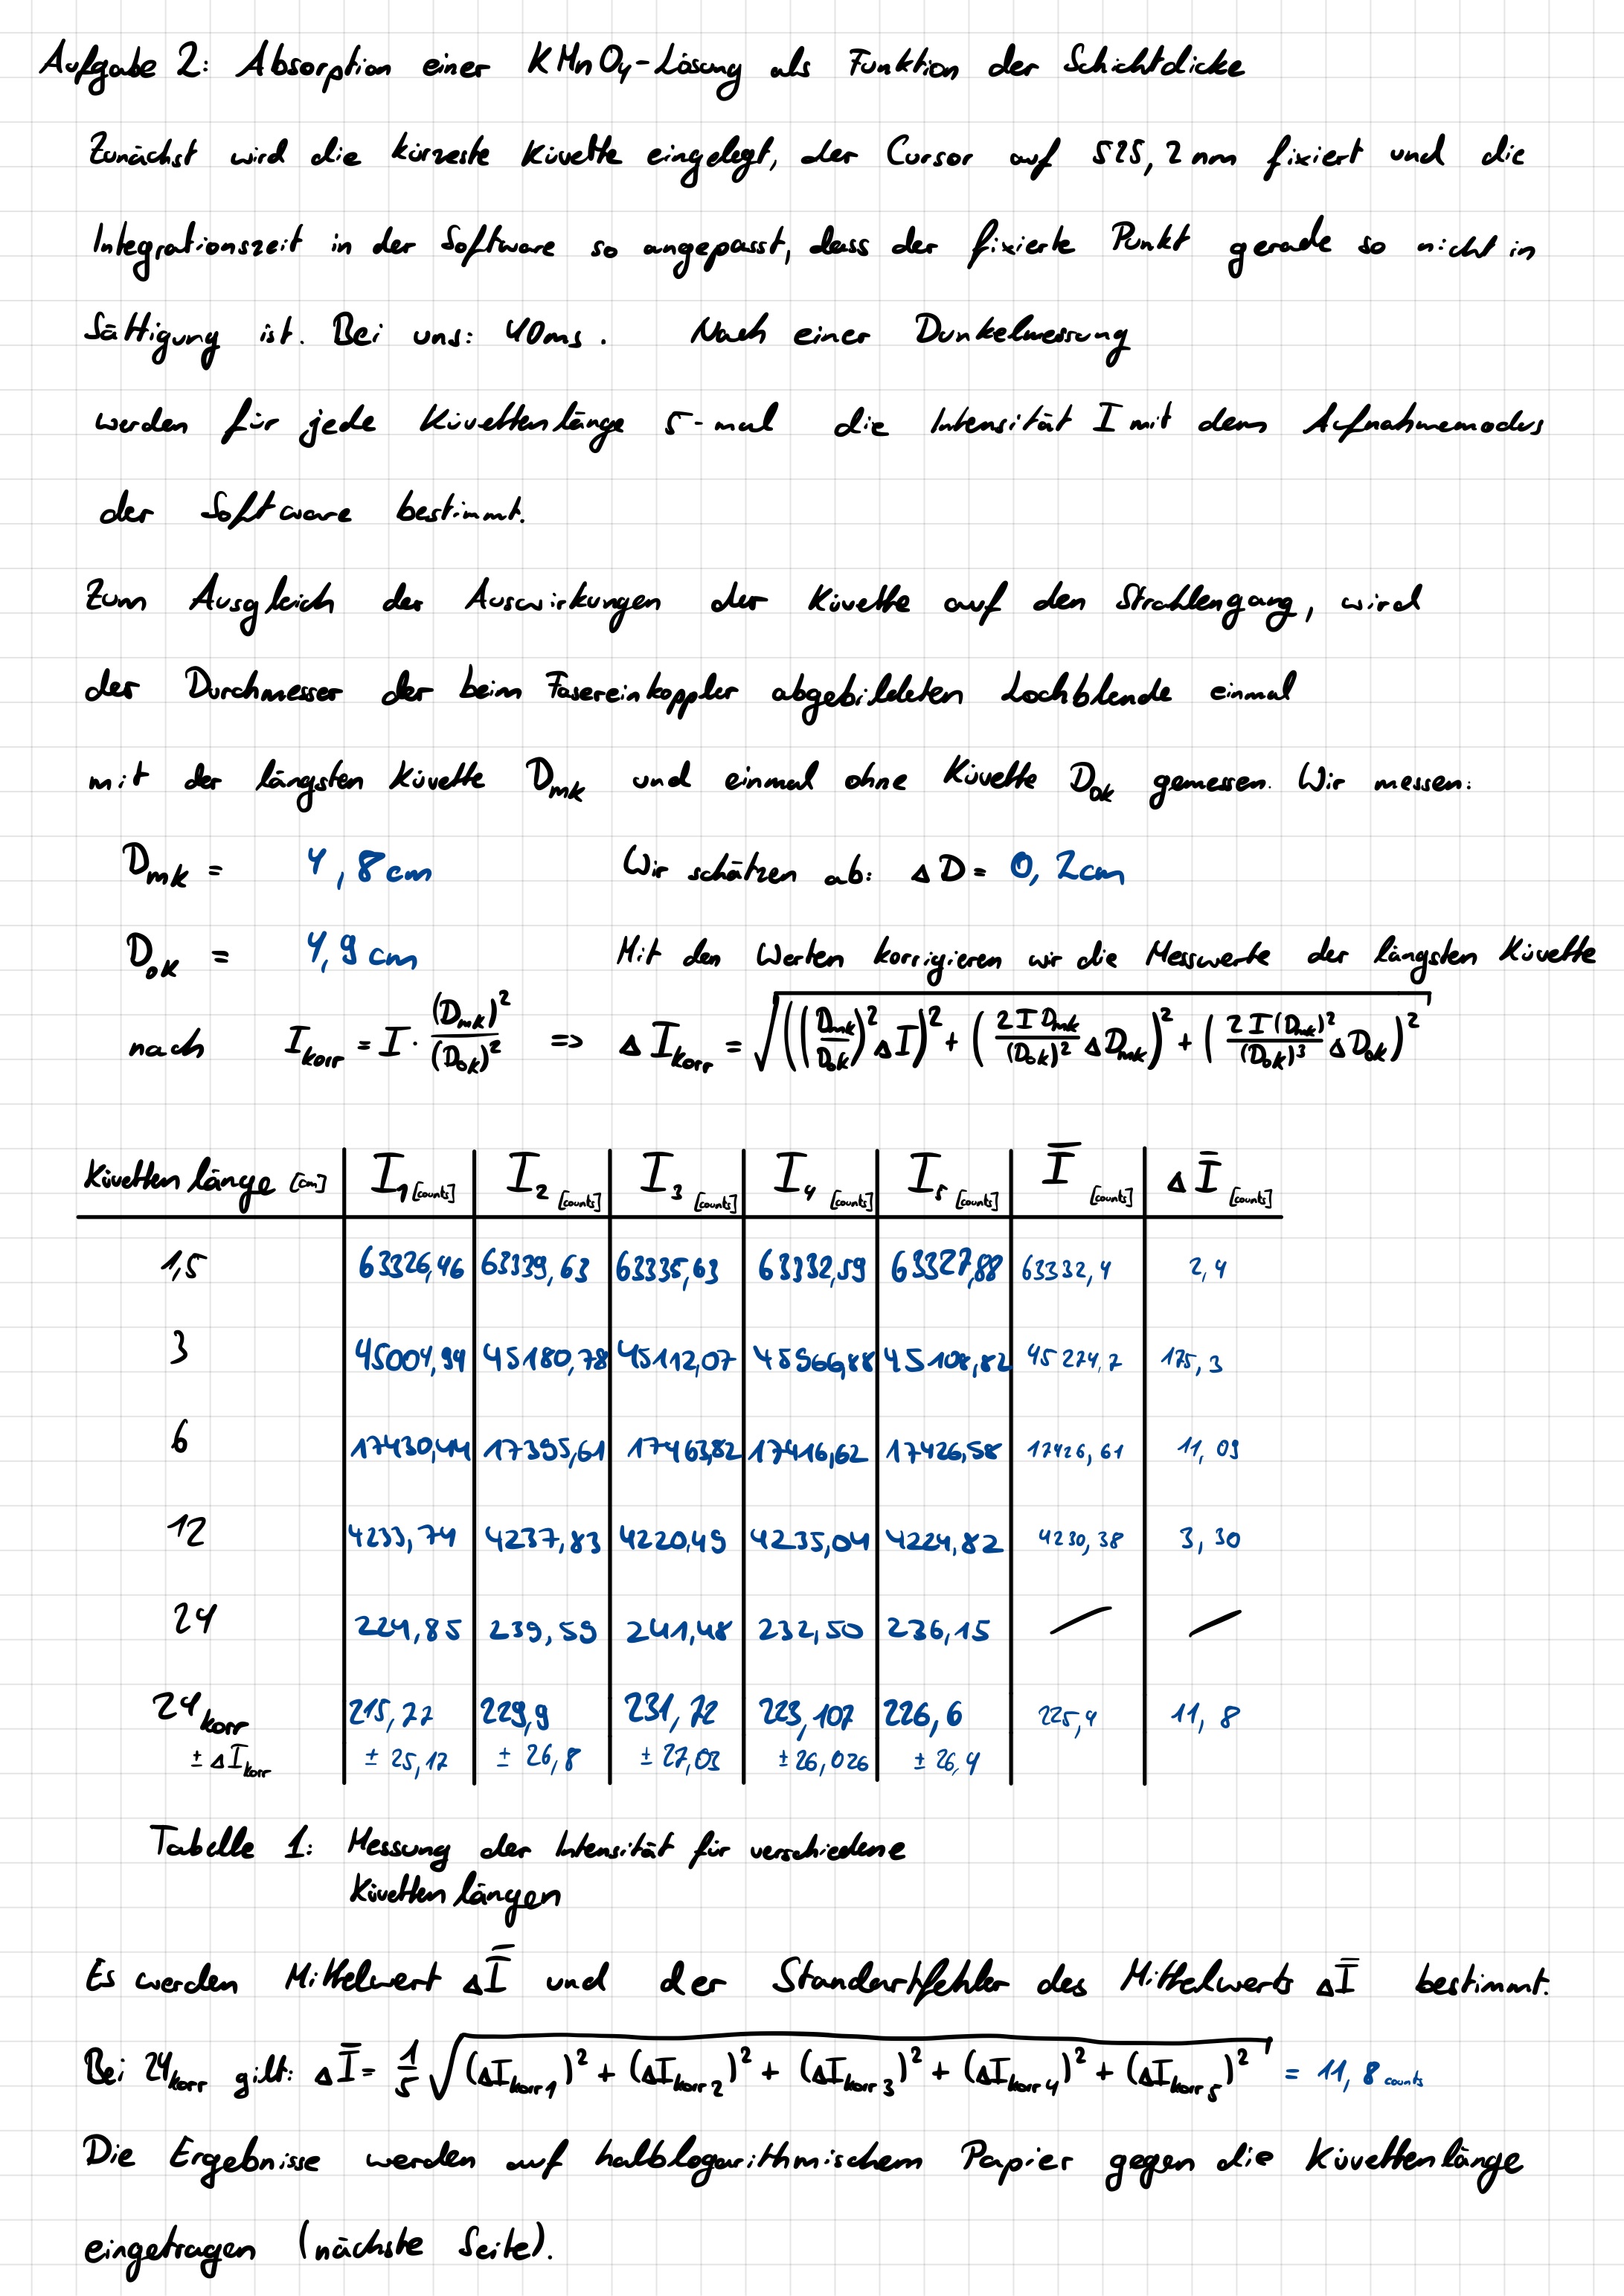 Aufgabe 2: Absorption einer KMnO₄-Lösung als Funktion der Schichtdicke
Zunächst wird die kürzeste Küvette eingelegt, der Cursor auf 525,2 nm fixiert und die
Integrationszeit in der Software so angepasst, dass der fixierte Punkt gerade so nicht in
Sättigung ist. Bei uns: 40ms. Nach einer Dunkelmessung
werden für jede Küvettenlänge 5-mal die Intensität I mit dem Aufnahmemodus
der Software bestimmt.
Zum Ausgleich der Auswirkungen der Küvette auf den Strahlengang, wird
der Durchmesser der beim Fasereinkoppler abgebildeten Lochblende einmal
mit der längsten Küvette D_mk und einmal ohne Küvette D_ok gemessen. Wir messen:
D_mk = 4,8cm Wir schätzen ab: ΔD = 0,2cm
D_ok = 4,9cm Mit den Werten korrigieren wir die Messwerte der längsten Küvette
nach I_korr = I · (D_mk)²/(D_ok)² => ΔI_korr = √(((D_mk/D_ok)² ΔI)² + (2 I D_mk/(D_ok)² ΔD_mk)² + (2 I (D_mk)²/(D_ok)³ ΔD_ok)²)
Küvettenlänge [cm] I₁ [counts] I₂ [counts] I₃ [counts] I₄ [counts] I₅ [counts] Ī [counts] ΔĪ [counts]
1,5 63326,46 63339,63 63335,63 63332,59 63327,88 63332,4 2,4
3 45004,94 45180,78 45112,07 45566,88 45108,82 45224,7 175,3
6 17430,44 17395,61 17463,82 17416,62 17426,58 17426,61 11,09
12 4233,74 4237,83 4220,49 4235,04 4224,82 4230,38 3,30
24 224,85 239,59 241,48 232,50 236,15 — —
24korr 215,77 229,9 231,72 223,107 226,6 225,4 11,8
± ΔI_korr ± 25,17 ± 26,8 ± 27,03 ± 26,026 ± 26,4
Tabelle 1: Messung der Intensität für verschiedene
Küvettenlängen
Es werden Mittelwert ΔĪ und der Standartfehler des Mittelwerts ΔĪ bestimmt.
Bei 24korr gilt: ΔĪ = 1/5 √((ΔI_korr1)² + (ΔI_korr2)² + (ΔI_korr3)² + (ΔI_korr4)² + (ΔI_korr5)²) = 11,8 counts
Die Ergebnisse werden auf halblogarithmischem Papier gegen die Küvettenlänge
eingetragen (nächste Seite).